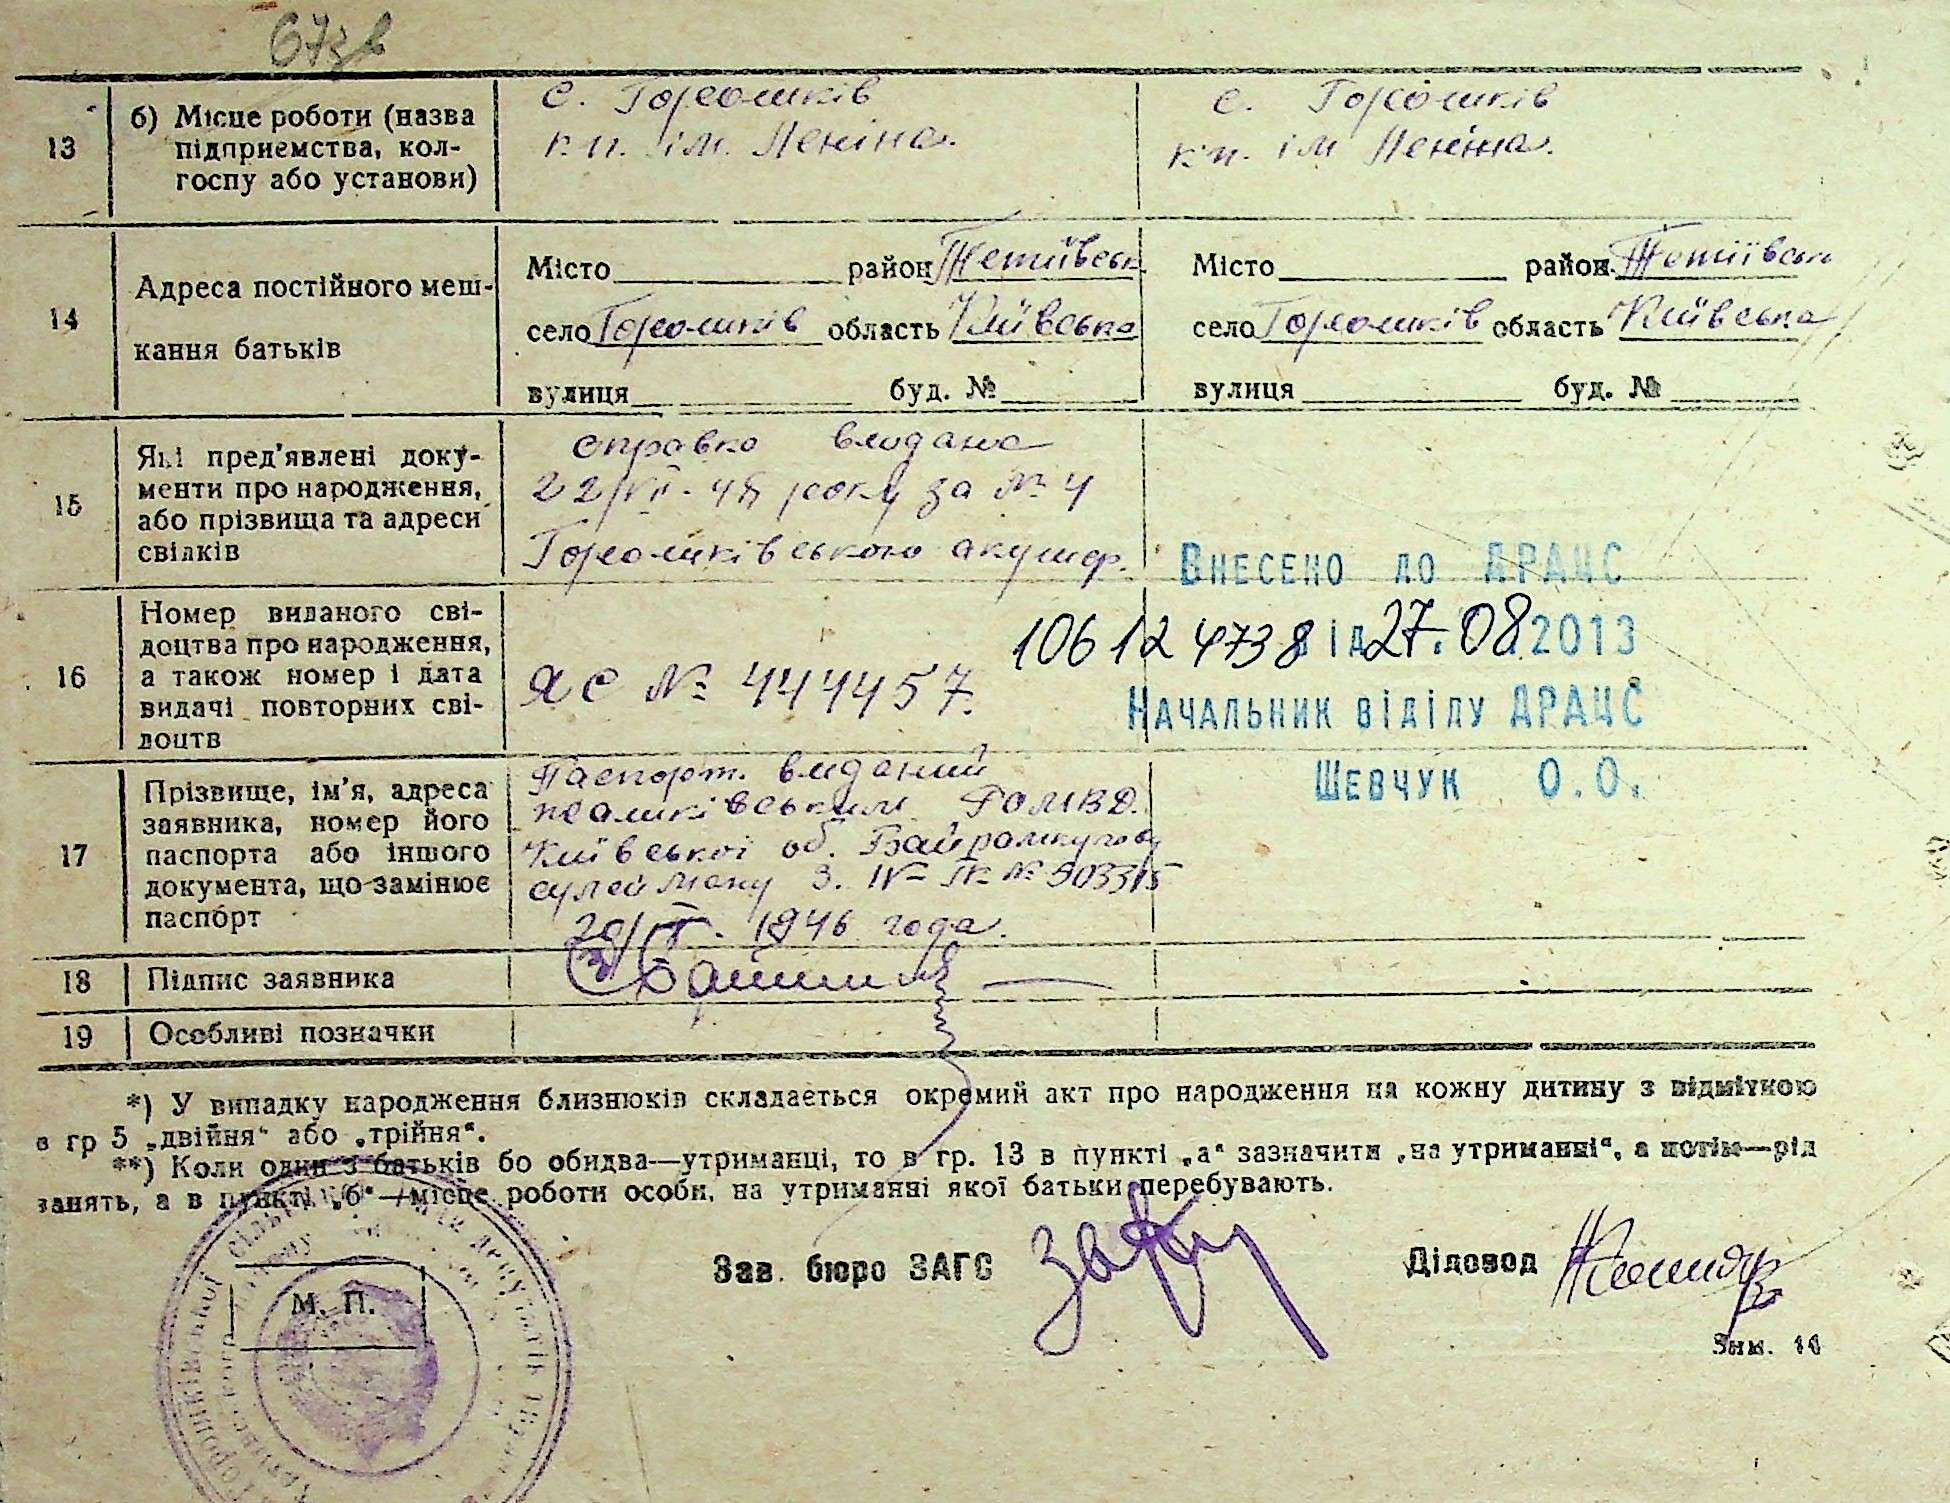 67зв
13
б) Місце роботи (назва
підприємства, кол-
госпу або установи)
с. Горошків
к-п. ім. Леніна.
с. Горошків
к-п. ім Леніна.
14
Адреса постійного меш-
кання батьків
Місто район Тетіївськ
село Горошків область Київська
вулиця буд. №
Місто район Тетіївськ
село Горошків область Київська
вулиця буд. №
15
Які пред'явлені доку-
менти про народження,
або прізвища та адреси
свідків
справка видана
22/VII-48 року за № 4
Горошківською акушер.
Внесено до ДРАЦС
16
Номер виданого сві-
доцтва про народження,
а також номер і дата
видачі повторних сві-
доцтв
ЯС № 444457.
106124738 від 27.08.2013
Начальник відділу ДРАЦС
Шевчук О.О.
17
Прізвище, ім'я, адреса
заявника, номер його
паспорта або іншого
документа, що замінює
паспорт
Паспорт. виданий
РОМВД.
Київської об. Байрамкулову
сулейману З. IV-ПК № 503315
1946 года.
18
Підпис заявника
19
Особливі позначки
*) У випадку народження близнюків складається окремий акт про народження на кожну дитину з відміткою
в гр 5 „двійня“ або „трійня“.
**) Коли один з батьків бо обидва—утриманці, то в гр. 13 в пункті „а“ зазначити „на утриманні“, а потім—рід
занять, а в пункті „б“—місце роботи особи, на утриманні якої батьки перебувають.
Зав. бюро ЗАГС
Діловод
М. П.
Зам. 11